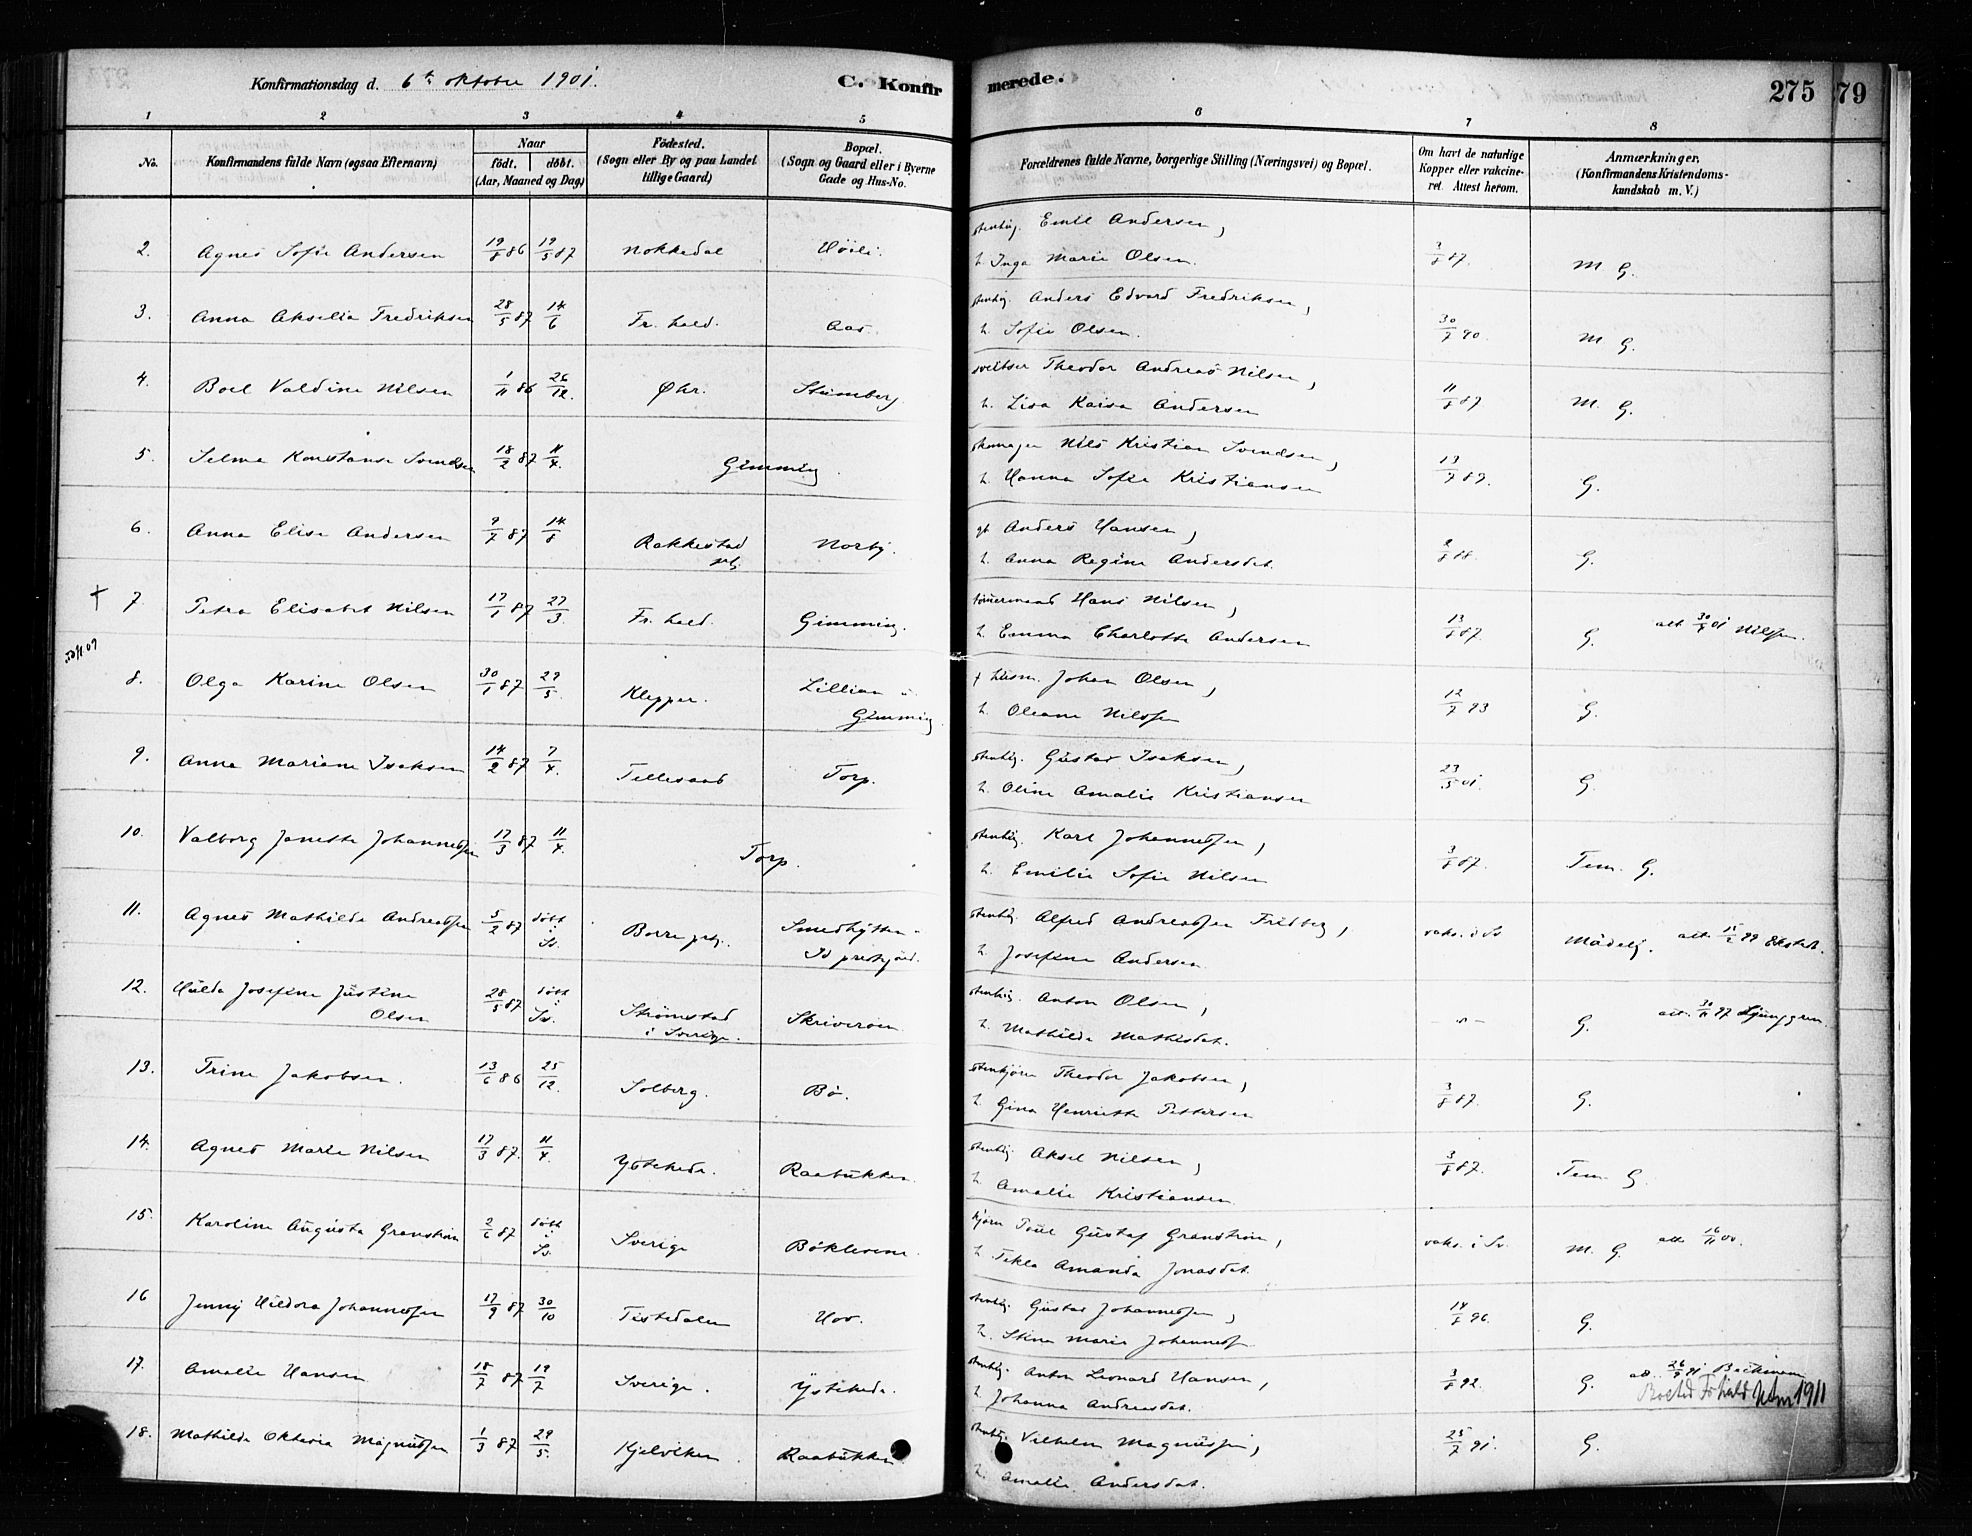 Konfirmationsdag d. 6te oktober 1901.
C. Konfirmerede.
275 79
1 2 3 4 5 6 7 8
No. Konfirmandens fulde Navn (ogsaa Efternavn) Naar født. døbt. (Aar, Maaned og Dag) Fødested. (Sogn eller By og paa Landet tillige Gaard) Bopæl. (Sogn og Gaard eller i Byerne Gade og Hus-No. Forældrenes fulde Navne, borgerlige Stilling (Næringsvei) og Bopæl. Om havt de naturlige Kopper eller vakcineret. Attest herom. Anmærkninger. (Konfirmandens Kristendomskundskab m. V.)
2. Agnes Sofie Andersen 19/8 86 19/5 87 Nokkedal Høili stenhug. Emil Andersen, 3/8 87. M G.
h. Inga Marie Olsen.
3. Anna Akselia Fredriksen 28/5 87 14/6 Fr. hald. Aas. stenhug. Anders Edvard Fredriksen, 30/7 90. M G.
h. Sofie Olsen.
4. Boel Valdine Nilsen 1/11 86 26/12. Øhr. Stumberg. Theodor Andreas Nilsen, 11/8 87 M. G.
h. Lisa Kaisa Andersen
5. Selma Konstanse Svendsen 18/2 87 11/4. Gimming. skomager Nils Kristian Svendsen, 13/7 89. G.
h. Hanna Sofie Kristiansen
6. Anna Elise Andersen 9/7 87 14/8 Rakkestad pg. Norby. gb Anders Hansen, G.
h. Anna Regine Andersdat.
7. Petra Elisabet Nilsen 17/1 87 27/3. Fr. hald. Gimming. tømmermand Hans Nilsen, 13/8 87. G. att. 30/9 01 Nilssen.
h. Emma Charlotte Andersen
8. Olga Karine Olsen 30/1 87 29/5. Klepper. Lillian u. Gimming † husm. Johan Olsen, 12/7 93 G.
h. Oleane Nilssen
9. Anna Mariane Isaksen 14/2 87 7/4. Tillesaas Torp. stenhug. Gustav Isaksen, 23/5 01. G.
h. Oline Amalie Kristiansen
10. Valborg Janette Johannessen 17/3 87 11/4. Torp. stenhug. Karl Johannessen, 3/8 87. Tem. G.
h. Emilie Sofie Nilsen
11. Agnes Mathilde Andreassen 5/2 87 døbt i Sv. Borre pg. Smedhytten Id prestgjæld. stenhug. Alfred Andreassen Fridberg, vaks. i Sv Mådelig. att. 15/2 99 Ekstedt.
h. Josefine Andersen.
12. Hulda Josefine Justine Olsen 28/5 87 døbt i Sv. Strømstad i Sverige. Skriverøen stenhug. Anton Olsen, - " - G. att. 30/11 97 Ljunggren.
h. Mathilda Mathisdat.
13. Trine Jakobsen. 13/6 86 25/12. Solberg. Bø. stenkjører Theodor Jakobsen, 3/8 87. G.
h. Gina Henriette Pettersen
14. Agnes Marie Nilsen 17/3 87. 11/4. Ystehede. Raabukken. stenhug. Aksel Nilsen, 3/8 87. Tem. G.
h. Amalie Kristiansen.
15. Karoline Augusta Granstrøm 2/6 87 døbt i Sv. Sverige Bøklerene. Gustaf Granstrøm, vaks. i Sv. M. G. att 16/11 00.
h. Tekla Amanda Jonasdat.
16 Jenny Hildora Johannessen 17/9 87 30/10 Tistedalen Hov. stenhug. Gustav Johannessen, 14/8 96. G.
h. Stina Marie Johanness
17. Amalie Hansen 18/7 87 19/7 Sverige. Ystehede. stenhug. Anton Leonard Hansen, 3/8 92. G. Beckman
h. Johanna Andreasdat. 1911
18. Mathilde Oktavia Magnussen 1/3 87 29/5. Kjelviken. Raabukken. stenhug. Vilhelm Magnussen, 25/7 91. G.
h. Amalie Andersdat.